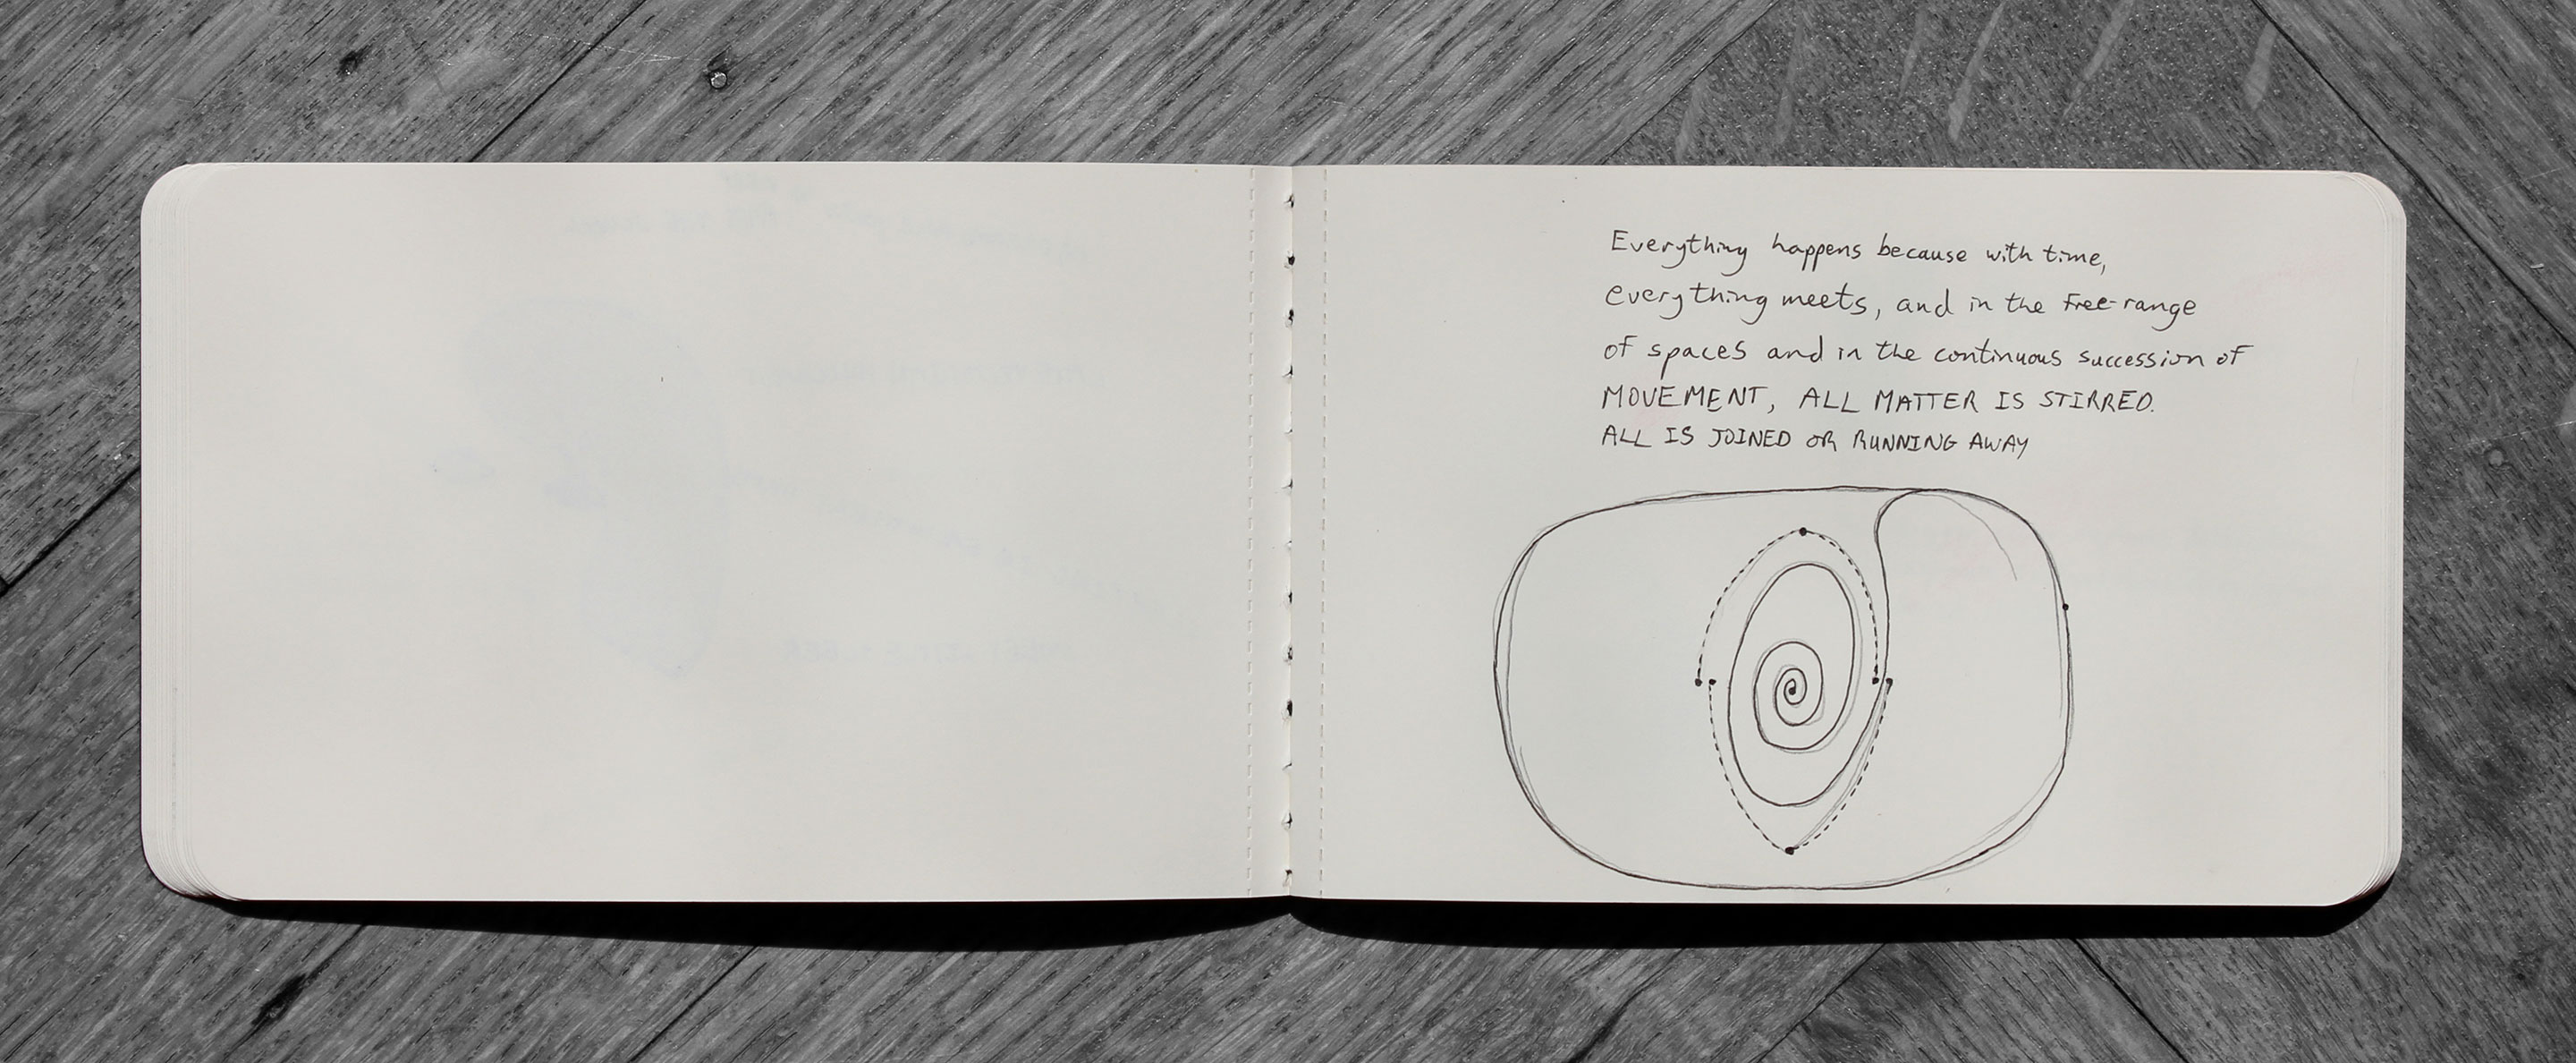 Everything happens because with time,
everything meets, and in the free-range
of spaces and in the continuous succession of
MOVEMENT, ALL MATTER IS STIRRED.
ALL IS JOINED OR RUNNING AWAY